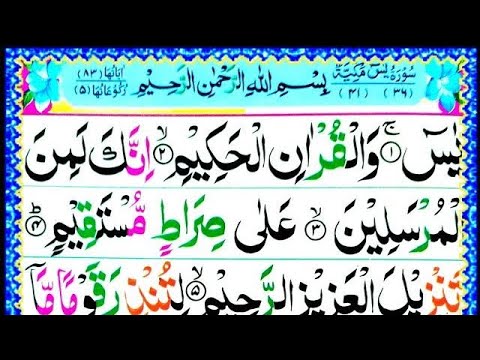 سُوْرَةُ يٰسٓ مَكِّيَّةٌ
(٣٦) (٤١)
بِسْمِ اللهِ الرَّحْمٰنِ الرَّحِيْمِ
اٰيَاتُهَا (٨٣)
رُكُوْعَاتُهَا (٥)
يٰسٓ ۚ ١ وَالْقُرْاٰنِ الْحَكِيْمِ ۙ ٢ اِنَّكَ لَمِنَ
الْمُرْسَلِيْنَ ۙ ٣ عَلٰى صِرَاطٍ مُّسْتَقِيْمٍ ؕ ٤
تَنْزِيْلَ الْعَزِيْزِ الرَّحِيْمِ ۙ ٥ لِتُنْذِرَ قَوْمًا مَّاۤ